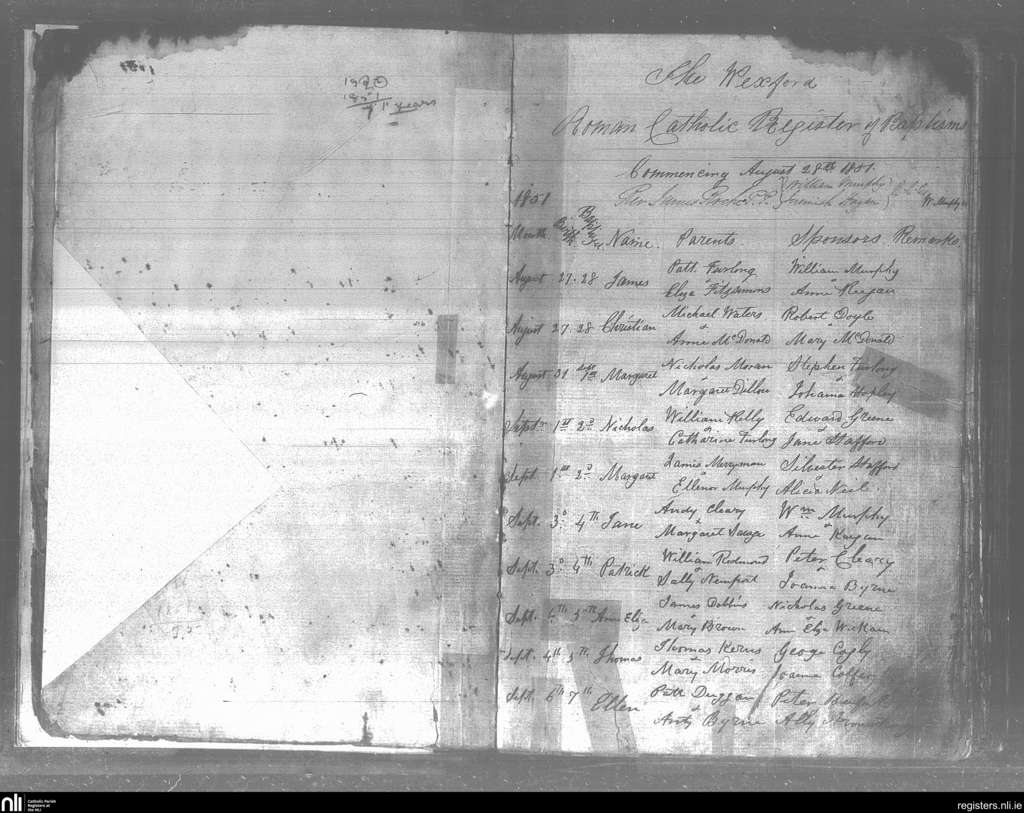 71 years
The Wexford
Roman Catholic Register of Baptisms
Commencing August 28th 1851.
William Murphy
1851
Rev James Roche P.P. Jeremiah Hogan
W. Murphy
Month Birth Name. Parents. Sponsors Remarks
Patt. Furlong William Murphy
August 27 - 28 James
Eliza Fitzsimons Anne
Michael Waters Robert Doyle
August 27 - 28 Christian
Anne McDonald Mary McDonald
Nicholas Moran Stephen Furlong
August 31 Sept 1st Margaret
Margaret Dillon Johanna
William Kelly Edward Greene
Septr 1st 2d Nicholas
Catharine Furlong Jane Stafford
James Merryman Silvester Stafford
Sept. 1st 2d Margaret
Ellenor Murphy Alicia Neil.
Andy Cleary Wm Murphy
Sept. 3d 4th Jane
Margaret Savage Anne
William Redmond Peter Cleary
Sept. 3d 4th Patrick
Sally Newport Joanna Byrne
James Dobbins Nicholas Greene
Sept. 5th Ann Eliza
Mary Brown Ann Eliza Wickam
Thomas Kerns George
Sept. 4th 5th Thomas
Mary Morris Joanna
Patt Duggan Peter
Sept. 6th 7th Ellen
Byrne Ally
nli Catholic Parish
Registers at
the NLI
registers.nli.ie